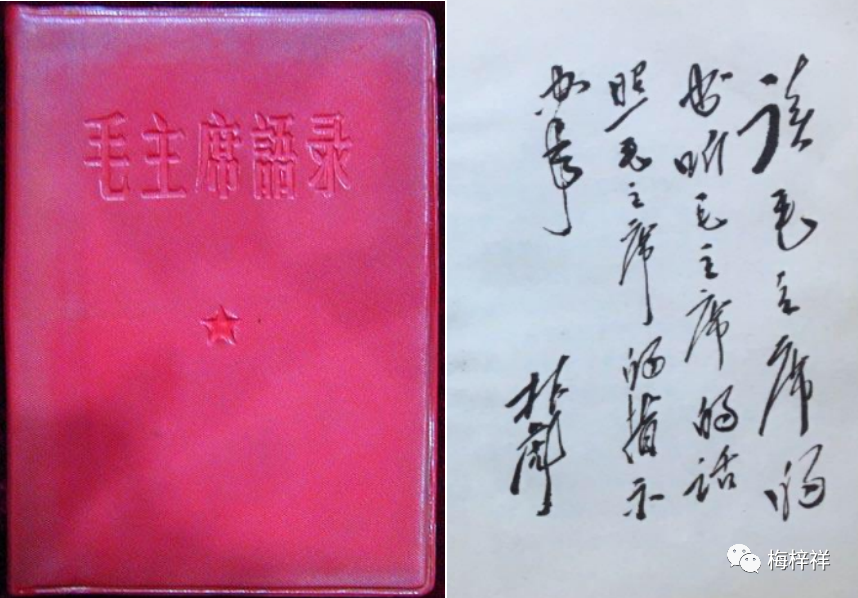 毛主席語录
读毛主席的
书听毛主席的话
照毛主席的指示
办事
林彪
梅梓祥